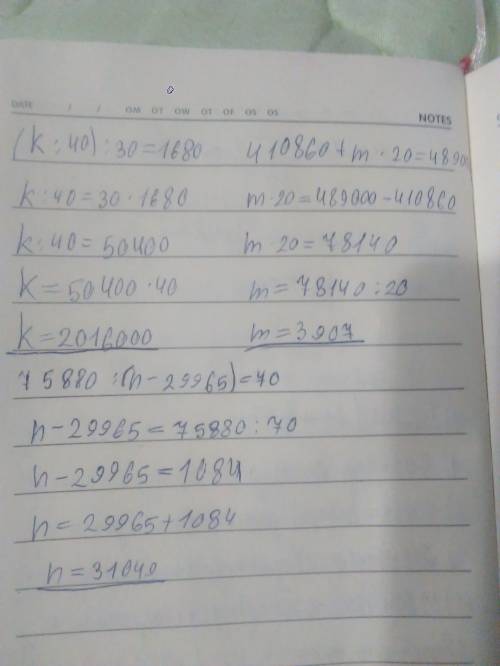 DATE / / OM OT OW OT OF OS OS NOTES
(k : 40) : 30 = 1680
k : 40 = 30 · 1680
k : 40 = 50400
k = 50400 · 40
k = 2016000
410860 + m · 20 = 4890
m · 20 = 489000 - 410860
m · 20 = 78140
m = 78140 : 20
m = 3907
75880 : (n - 29965) = 70
n - 29965 = 75880 : 70
n - 29965 = 1084
n = 29965 + 1084
n = 31040